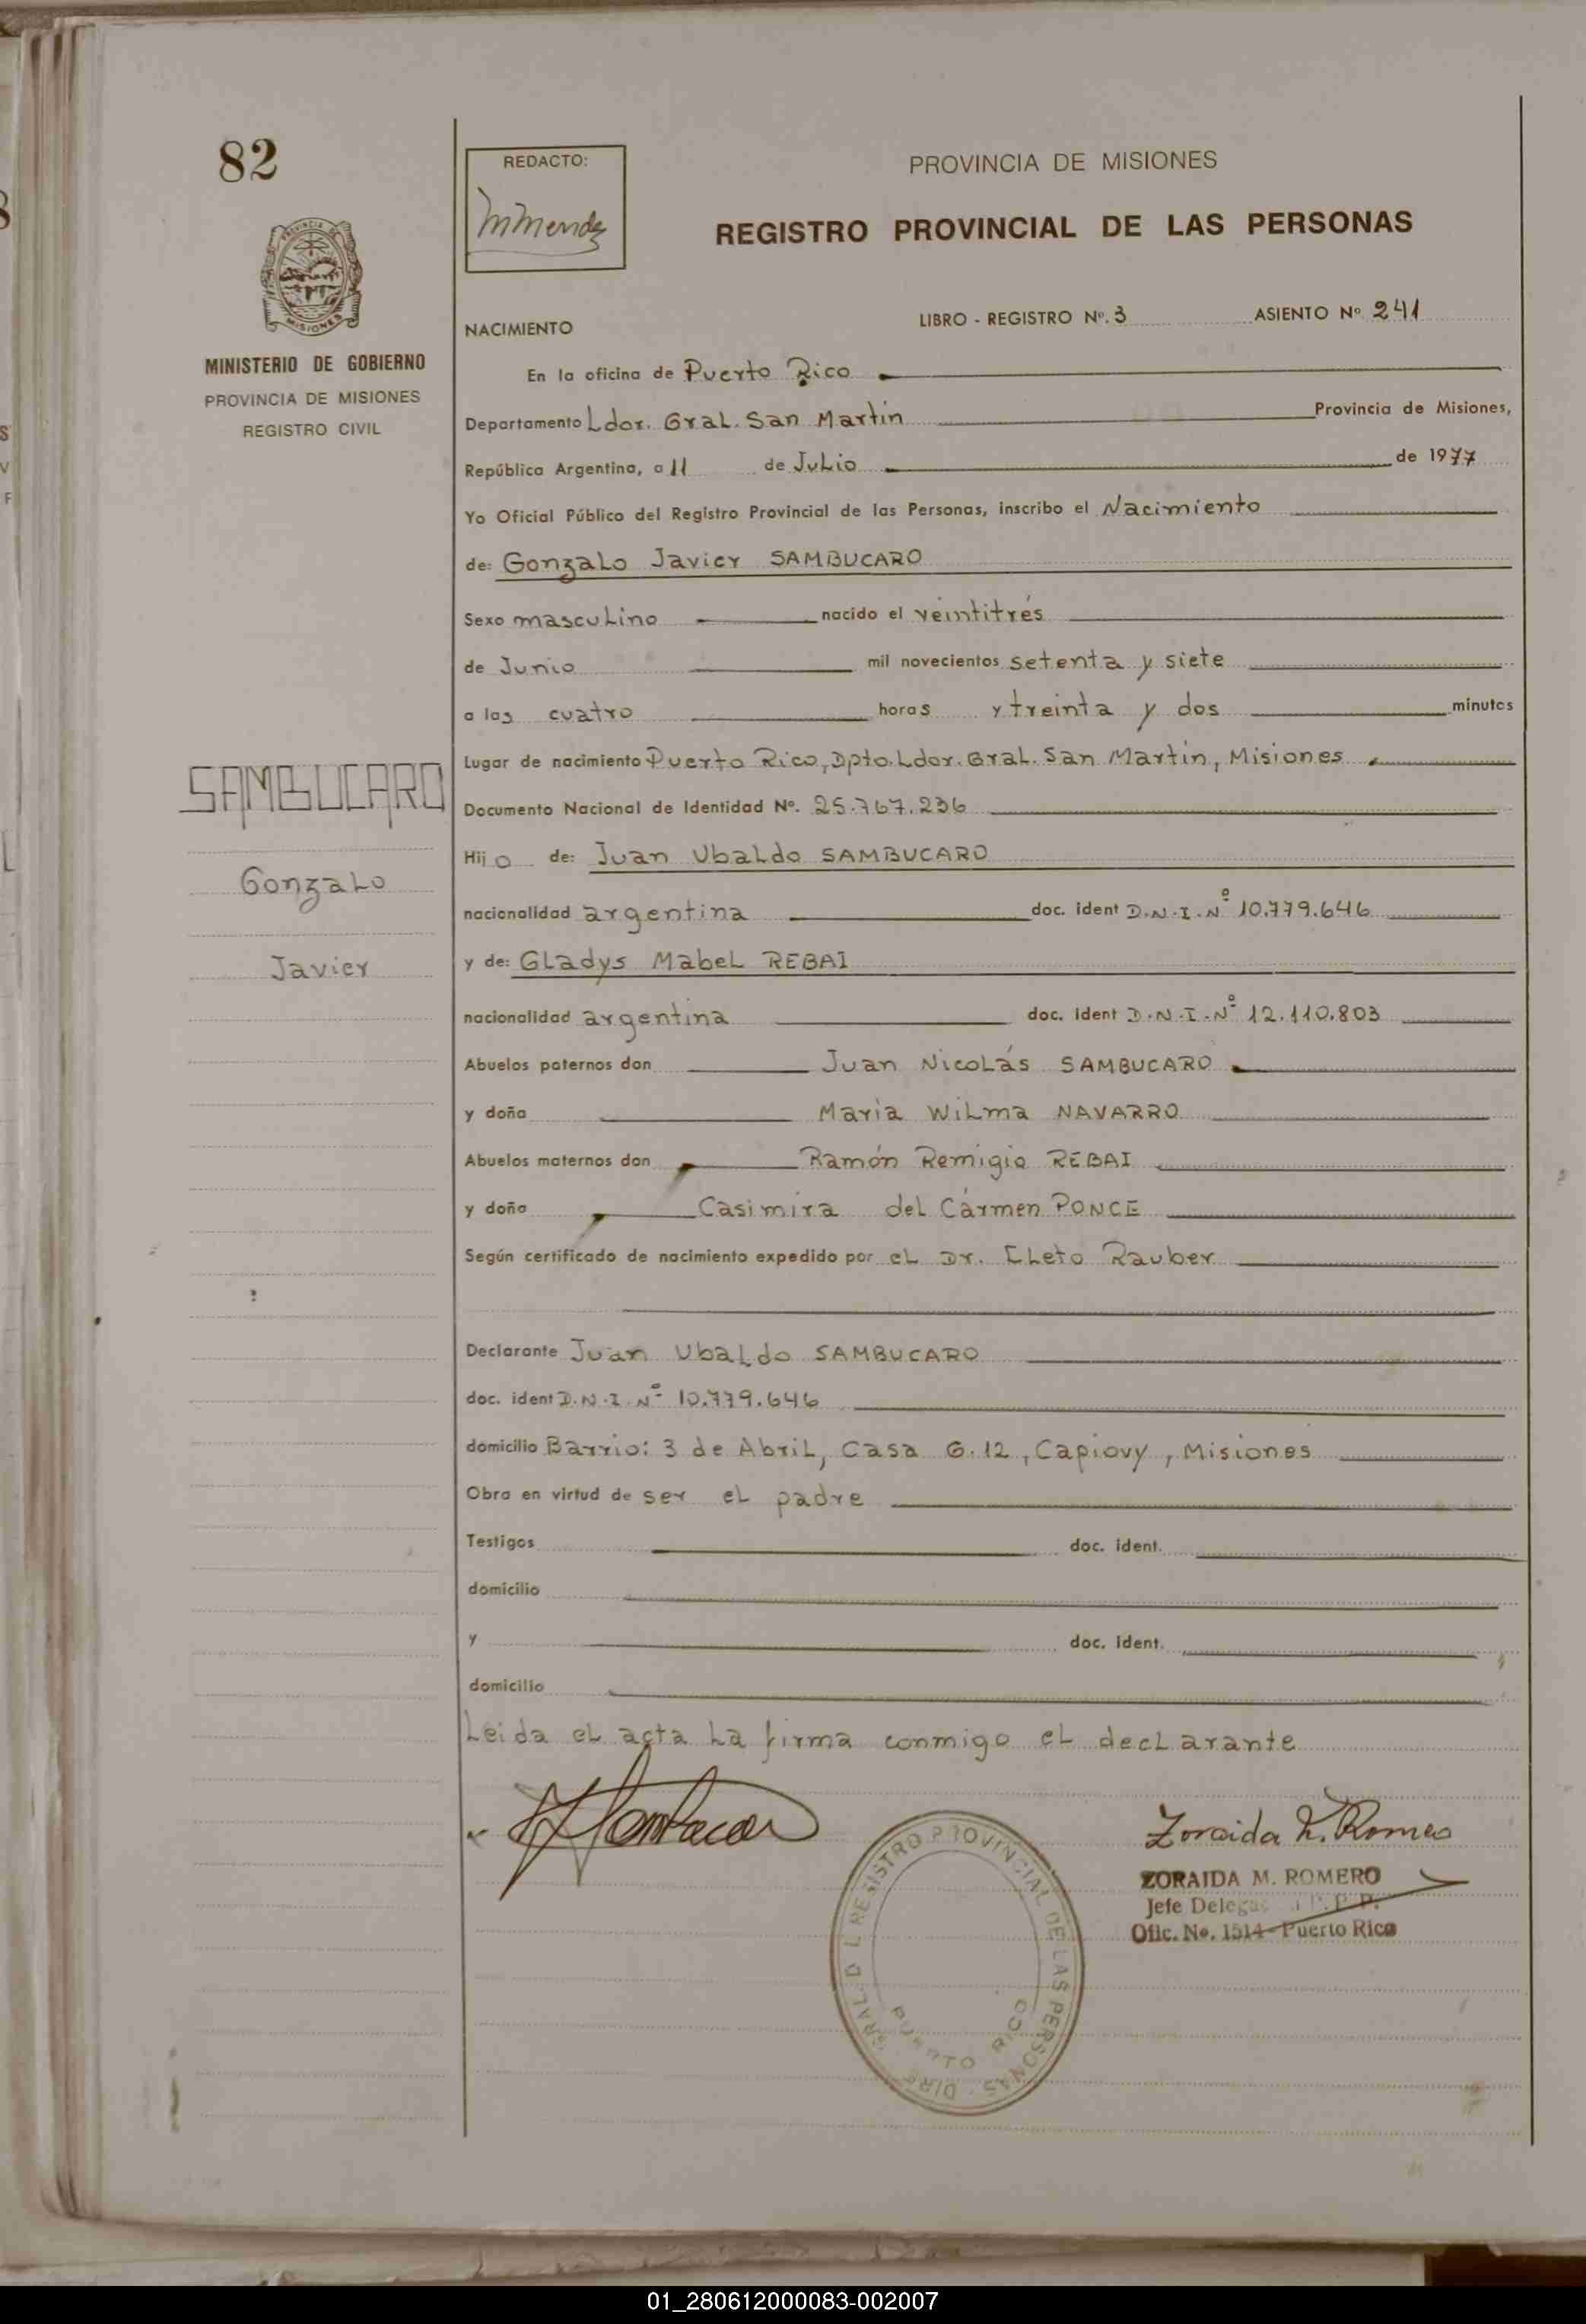 82
REDACTO:
MMendez
PROVINCIA DE MISIONES
REGISTRO PROVINCIAL DE LAS PERSONAS
MINISTERIO DE GOBIERNO
PROVINCIA DE MISIONES
REGISTRO CIVIL
NACIMIENTO
LIBRO - REGISTRO Nº. 3 ASIENTO Nº 241
En la oficina de Puerto Rico
Departamento Ldor. Gral. San Martín Provincia de Misiones,
República Argentina, a 11 de Julio de 1977
Yo Oficial Público del Registro Provincial de las Personas, inscribo el Nacimiento
de: Gonzalo Javier SAMBUCARO
Sexo masculino nacido el veintitrés
de Junio mil novecientos setenta y siete
a las cuatro horas y treinta y dos minutos
Lugar de nacimiento Puerto Rico, Dpto. Ldor. Gral. San Martín, Misiones
SAMBUCARO
Gonzalo
Javier
Documento Nacional de Identidad Nº. 25.767.236
Hijo de: Juan Ubaldo SAMBUCARO
nacionalidad argentina doc. ident D.N.I. Nº 10.779.646
y de: Gladys Mabel REBAI
nacionalidad argentina doc. ident D.N.I. Nº 12.110.803
Abuelos paternos don Juan Nicolás SAMBUCARO
y doña María Wilma NAVARRO
Abuelos maternos don Ramón Remigio REBAI
y doña Casimira del Cármen PONCE
Según certificado de nacimiento expedido por el Dr. Cleto Rauber
Declarante Juan Ubaldo SAMBUCARO
doc. ident D.N.I. Nº 10.779.646
domicilio Barrio: 3 de Abril, Casa G.12, Capiovy, Misiones
Obra en virtud de ser el padre
Testigos doc. ident.
domicilio
y doc. ident.
domicilio
Leida el acta la firma conmigo el declarante
Zoraida M. Romero
ZORAIDA M. ROMERO
Jefe
Ofic. No. 1514 - Puerto Rico
REGISTRO PROVINCIAL DE LAS PERSONAS
PUERTO RICO
01_280612000083-002007